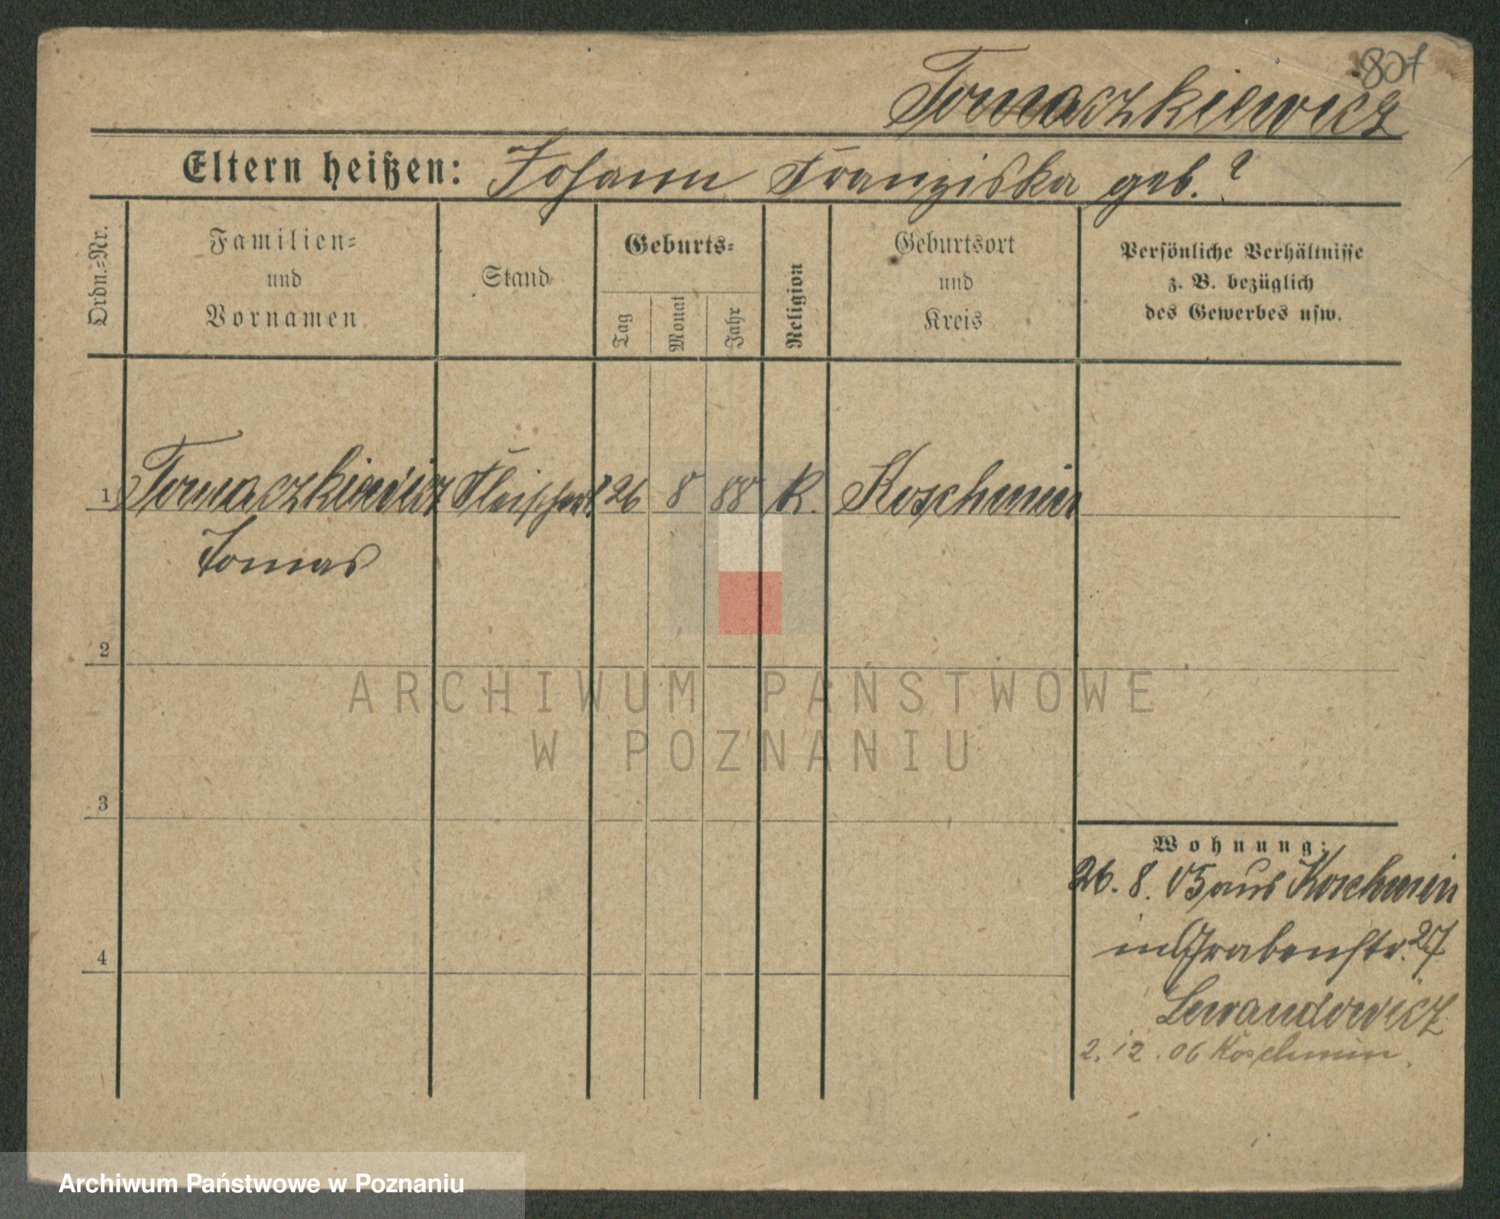 807
Tomaczkiewicz
Eltern heißen: Johann Franziska geb. ?
Ordn.-Nr.
Familien-
und
Vornamen
Stand
Geburts-
Tag
Monat
Jahr
Religion
Geburtsort
und
Kreis
Persönliche Verhältnisse
z. B. bezüglich
des Gewerbes usw.
1 Tomaczkiewicz Fleischerl. 26 8 88 K. Koschmin
Tomas
2
3
4
Wohnung:
26. 8. 05 aus Koschmin
in Grabenstr. 27
Lewandowicz
2. 12. 06 Koschmin
ARCHIWUM PAŃSTWOWE
W POZNANIU
Archiwum Państwowe w Poznaniu